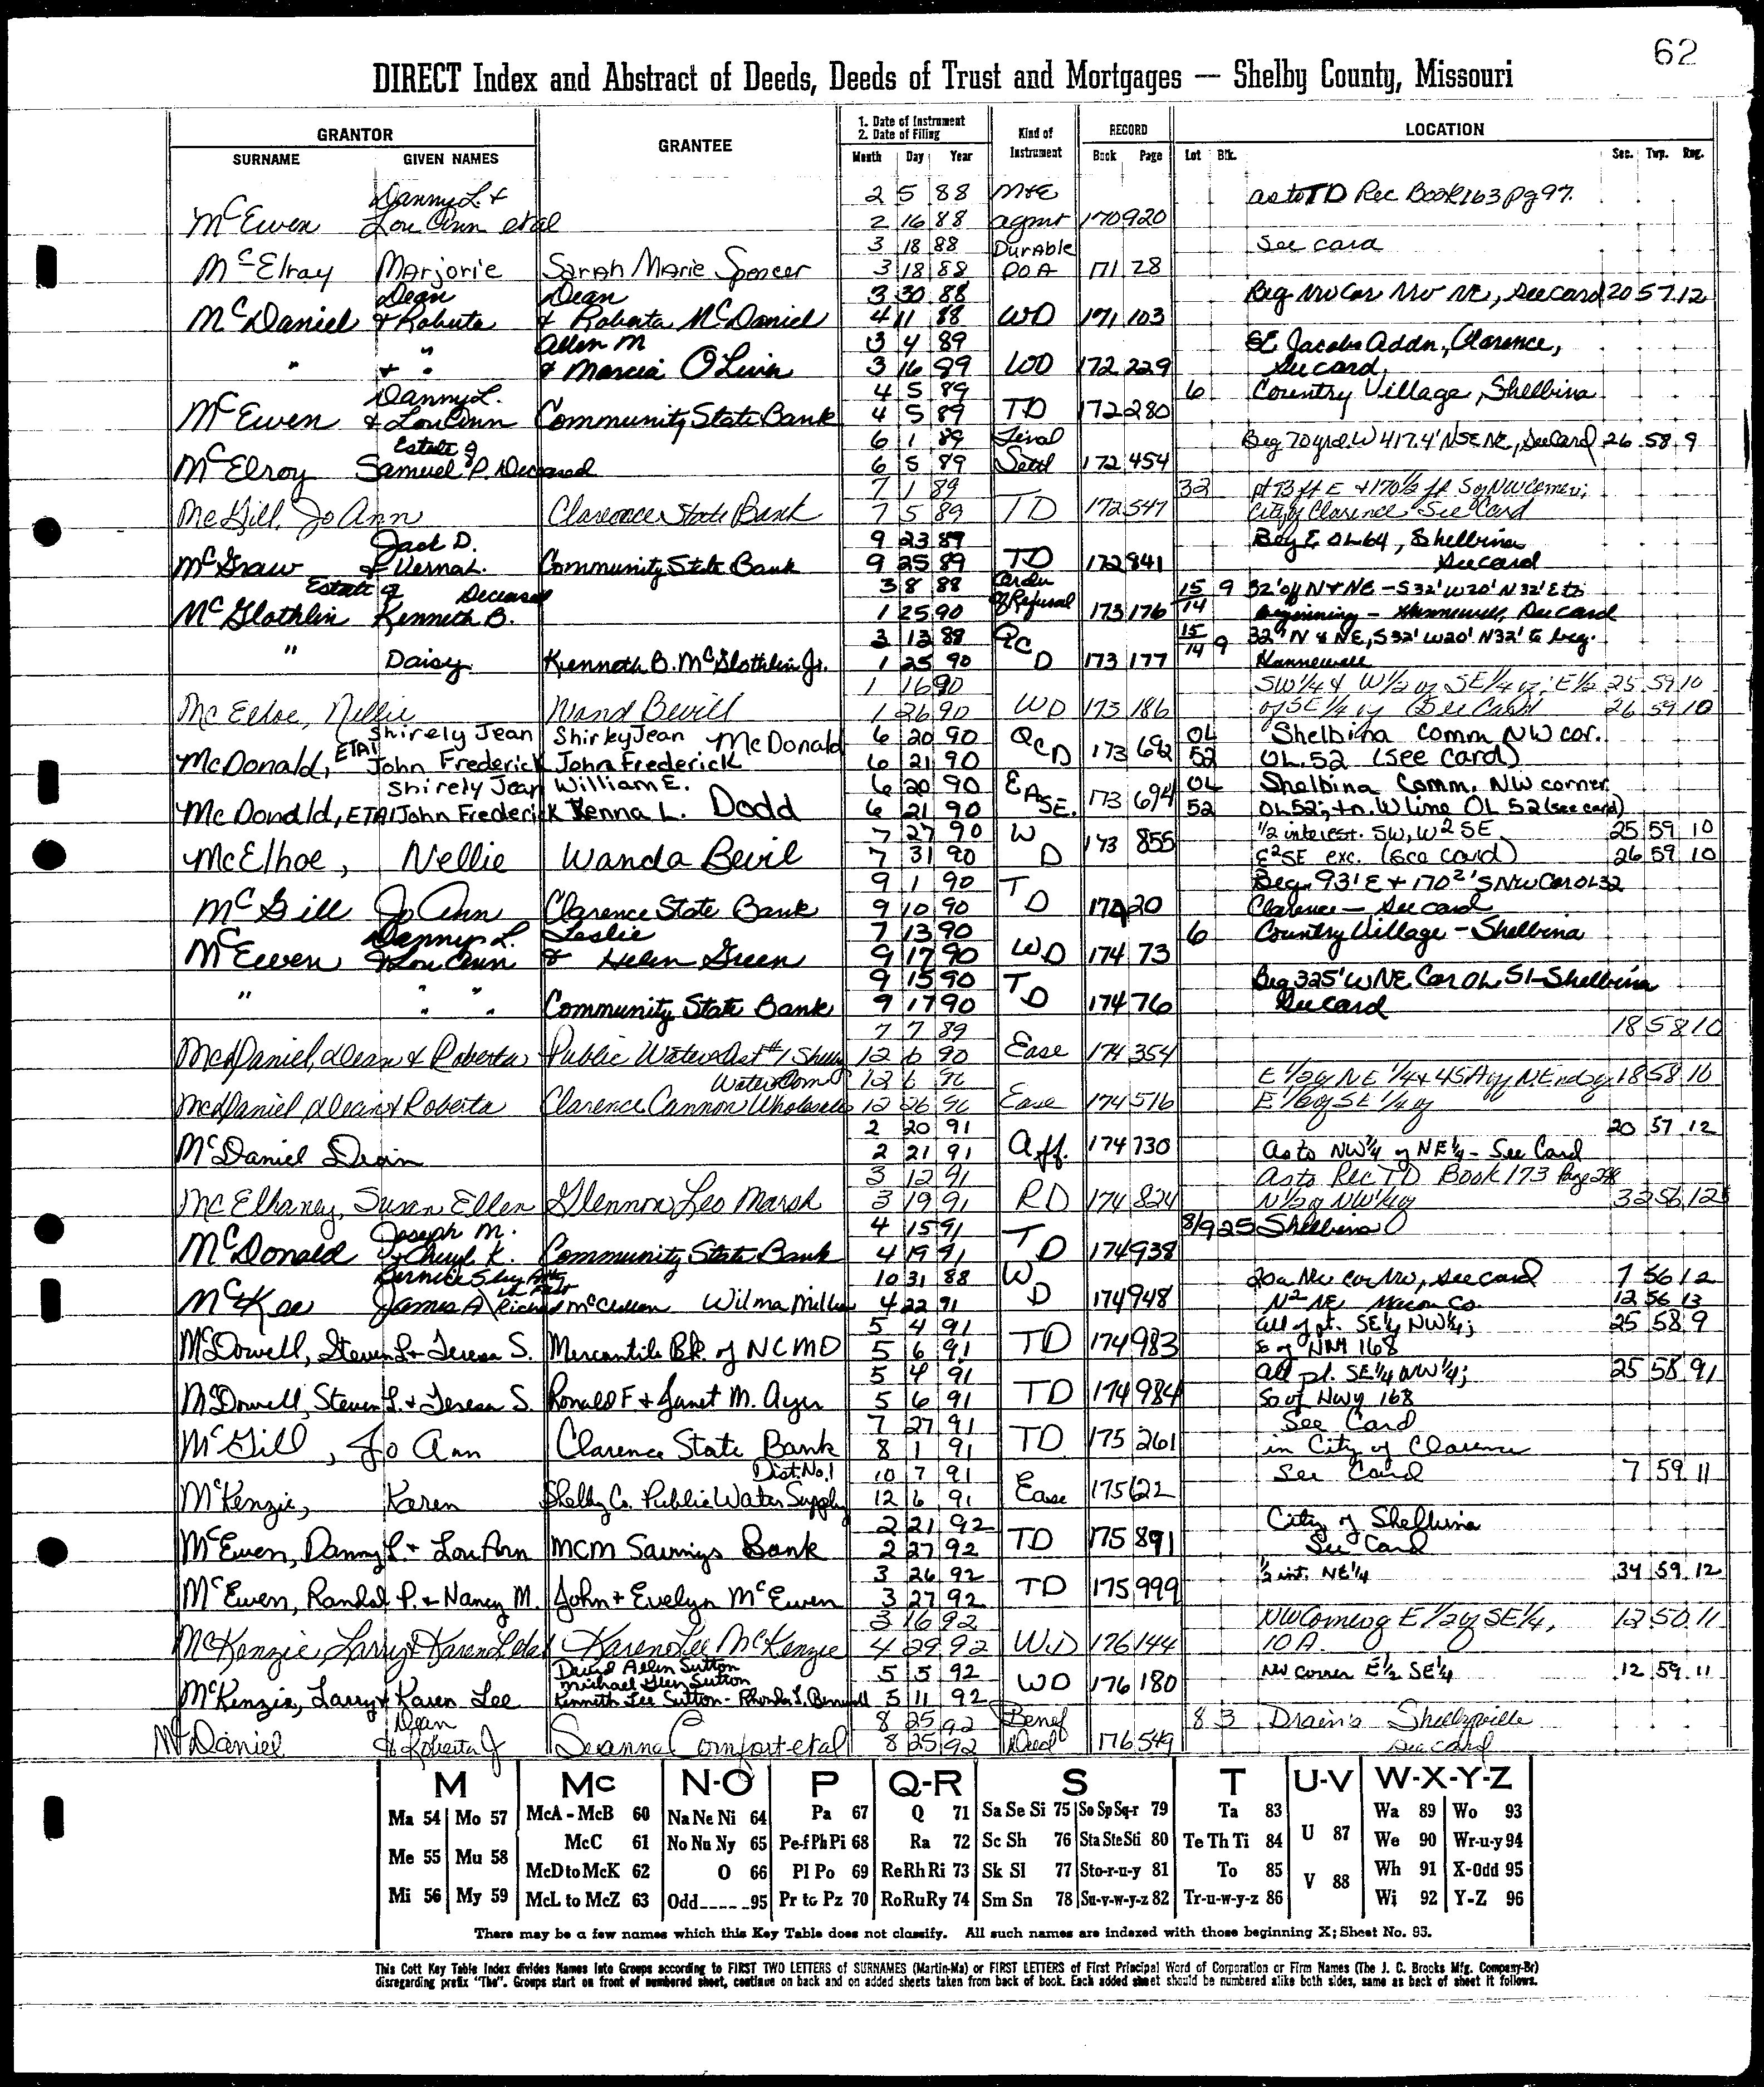 62
DIRECT Index and Abstract of Deeds, Deeds of Trust and Mortgages — Shelby County, Missouri
GRANTOR GRANTEE 1. Date of Instrument 2. Date of Filing Kind of Instrument RECORD LOCATION
SURNAME GIVEN NAMES Month Day Year Book Page Lot Blk. Sec. Twp. Rng.
Danny L. & 2 5 88 M&E as to TD Rec Book 163 pg 97.
McEwen Lou Ann etal 2 16 88 agmt 170 920
3 18 88 Durable See card
McElray Marjorie Sarah Marie Spencer 3 18 88 POA 171 28
Dean Dean 3 30 88 Beg NW Cor NW NE, See card 20 57 12
McDaniel & Roberta & Roberta McDaniel 4 11 88 WD 171 103
" Allen M 3 4 89 SE Jacobs Addn, Clarence,
" & " & Marcia O'Livin 3 16 89 WD 172 229 See card
Danny L. 4 5 89 6 Country Village, Shelbina
McEwen & Lou Ann Community State Bank 4 5 89 TD 172 280
Estate of 6 1 89 Final Beg 70 yrd. W 417.4' N SE NE, See Card 26 58 9
McElroy Samuel P. Deceased 6 5 89 Settl 172 454
7 1 89 32 pt 93 ft E & 170 1/2 ft S of NW Corner;
McGill, Jo Ann Clarence State Bank 7 5 89 TD 172 547 City of Clarence See Card
Jack D. 9 23 89 Beg E OL 64, Shelbina
McGraw & Verna L. Community State Bank 9 25 89 TD 172 841 See card
Estate of Deceased 3 8 88 Order 15 9 32' off N & NE - S 32' W 20' N 32' E to
McGlothlin Kenneth B. 1 25 90 of Refusal 173 176 14 beginning - Hunnewell, See card
3 13 88 QC 15 9 32' N & NE, S 32' W 20' N 32' to beg.
" Daisy Kenneth B. McGlothlin Jr. 1 25 90 D 173 177 14 Hunnewell
1 16 90 SW 1/4 & W 1/2 of SE 1/4 of; E 1/2 25 59 10
McElhoe, Nellie Wand Bevill 1 26 90 WD 173 186 of SE 1/4 of (See Card) 26 59 10
Shirely Jean Shirley Jean McDonald 6 20 90 QC OL Shelbina Comm NW cor.
McDonald, ETAl John Frederick John Frederick 6 21 90 D 173 692 52 OL 52 (see card)
Shirely Jean William E. 6 20 90 EASE. OL Shelbina Comm. NW corner
McDonald, ETAl John Frederick Venna L. Dodd 6 21 90 173 694 52 OL 52; th. W line OL 52 (see card)
7 27 90 W 1/2 interest. SW, W2 SE 25 59 10
McElhoe, Nellie Wanda Bevil 7 31 90 D 173 855 E2SE exc. (see card) 26 59 10
9 1 90 T Beg. 93' E & 170 2' S NW Cor OL 32
McGill Jo Ann Clarence State Bank 9 10 90 D 174 20 Clarence - See card
Danny L. Leslie 7 13 90 6 Country Village - Shelbina
McEwen & Lou Ann & Helen Green 9 17 90 WD 174 73
9 15 90 T Beg 325' W NE Cor OL 51 - Shelbina
" " " Community State Bank 9 17 90 D 174 76 See card
7 7 89 18 58 10
McDaniel, Dean & Roberta Public Water Dist #1 Shelby 12 6 90 Ease 174 354
Water Com 12 6 90 E 1/2 of NE 1/4 & 45 A of N End of 18 58 10
McDaniel Dean & Roberta Clarence Cannon Wholesale 12 26 90 Ease 174 516 E 1/2 of SE 1/4 of
2 20 91 20 57 12
McDaniel Dean 2 21 91 Aff. 174 730 As to NW 1/4 of NE 1/4 - See Card
3 12 91 As to Rec TD Book 173 Page
McElhaney, Susan Ellen Glennon Leo Marsh 3 19 91 RD 174 824 N 1/2 of NW 1/4 of 32 56 12
Joseph M. 4 15 91 T 8/9 25 Shelbina
McDonald & Cheryl K. Community State Bank 4 19 91 D 174 938
Bernice S by Atty in Fact 10 31 88 W 20a NW cor NW, See card 7 56 12
McKee James A Richard McClellan Wilma Miller 4 22 91 D 174 948 N2 NE Macon Co. 12 56 13
5 4 91 all of pt. SE 1/4 NW 1/4; 25 58 9
McDowell, Steven L. & Teresa S. Mercantile Bk. of NCMO 5 6 91 TD 174 983 S of HWY 168
5 4 91 all pt. SE 1/4 NW 1/4; 25 58 91
McDowell, Steven L. & Teresa S. Ronald F. & Janet M. Ayer 5 6 91 TD 174 984 So of Hwy 168
7 27 91 See Card
McGill, Jo Ann Clarence State Bank 8 1 91 TD 175 261 in City of Clarence
Dist. No. 1 10 7 91 See Card 7 59 11
McKenzie, Karen Shelby Co. Public Water Supply 12 6 91 Ease 175 622
2 21 92 City of Shelbina
McEwen, Danny L. & Lou Ann MCM Savings Bank 2 27 92 TD 175 891 See Card
3 26 92 1/2 int. NE 1/4 34 59 12
McEwen, Randal P. & Nancy M. John & Evelyn McEwen 3 27 92 TD 175 999
3 16 92 NW Corner of E 1/2 of SE 1/4, 12 50 11
McKenzie, Larry & Karen L etal Karen Lee McKenzie 4 29 92 WD 176 144 10 A.
David Allen Sutton
Michael Glen Sutton 5 5 92 NW corner E 1/2 SE 1/4 12 59 11
McKenzie, Larry & Karen Lee Kenneth Lee Sutton - Rhonda L. 5 11 92 WD 176 180
Dean 8 25 92 Benef 8 3 Drain's Shelbyville
McDaniel & Roberta J Seanna Comfort etal 8 25 92 Deed 176 549 See card
M Mc N-O P Q-R S T U-V W-X-Y-Z
Ma 54 Mo 57 McA - McB 60 Na Ne Ni 64 Pa 67 Q 71 Sa Se Si 75 So Sp Sq-r 79 Ta 83 U 87 Wa 89 Wo 93
Me 55 Mu 58 McC 61 No Nu Ny 65 Pe-f Ph Pi 68 Ra 72 Sc Sh 76 Sta Ste Sti 80 Te Th Ti 84 We 90 Wr-u-y 94
McD to McK 62 O 66 Pl Po 69 Re Rh Ri 73 Sk Sl 77 Sto-r-u-y 81 To 85 V 88 Wh 91 X-Odd 95
Mi 56 My 59 McL to McZ 63 Odd-----95 Pr to Pz 70 Ro Ru Ry 74 Sm Sn 78 Su-v-w-y-z 82 Tr-u-w-y-z 86 Wi 92 Y-Z 96
There may be a few names which this Key Table does not classify. All such names are indexed with those beginning X; Sheet No. 95.
This Cott Key Table Index divides Names into Groups according to FIRST TWO LETTERS of SURNAMES (Martin-Ma) or FIRST LETTERS of First Principal Word of Corporation or Firm Names (The J. C. Brooks Mfg. Company-Br)
disregarding prefix "The". Groups start on front of numbered sheet, continue on back and on added sheets taken from back of book. Each added sheet should be numbered alike both sides, same as back of sheet it follows.